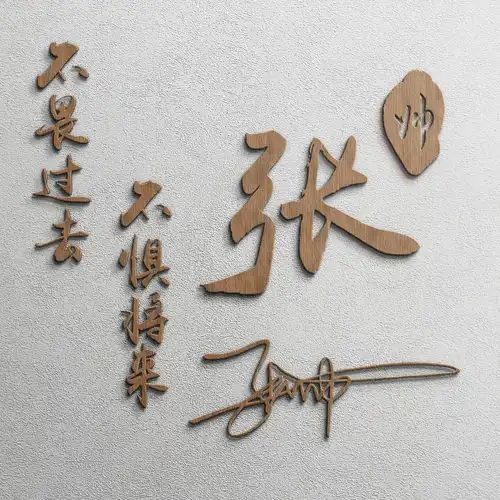 不畏过去
不惧将来
张
帅
张帅